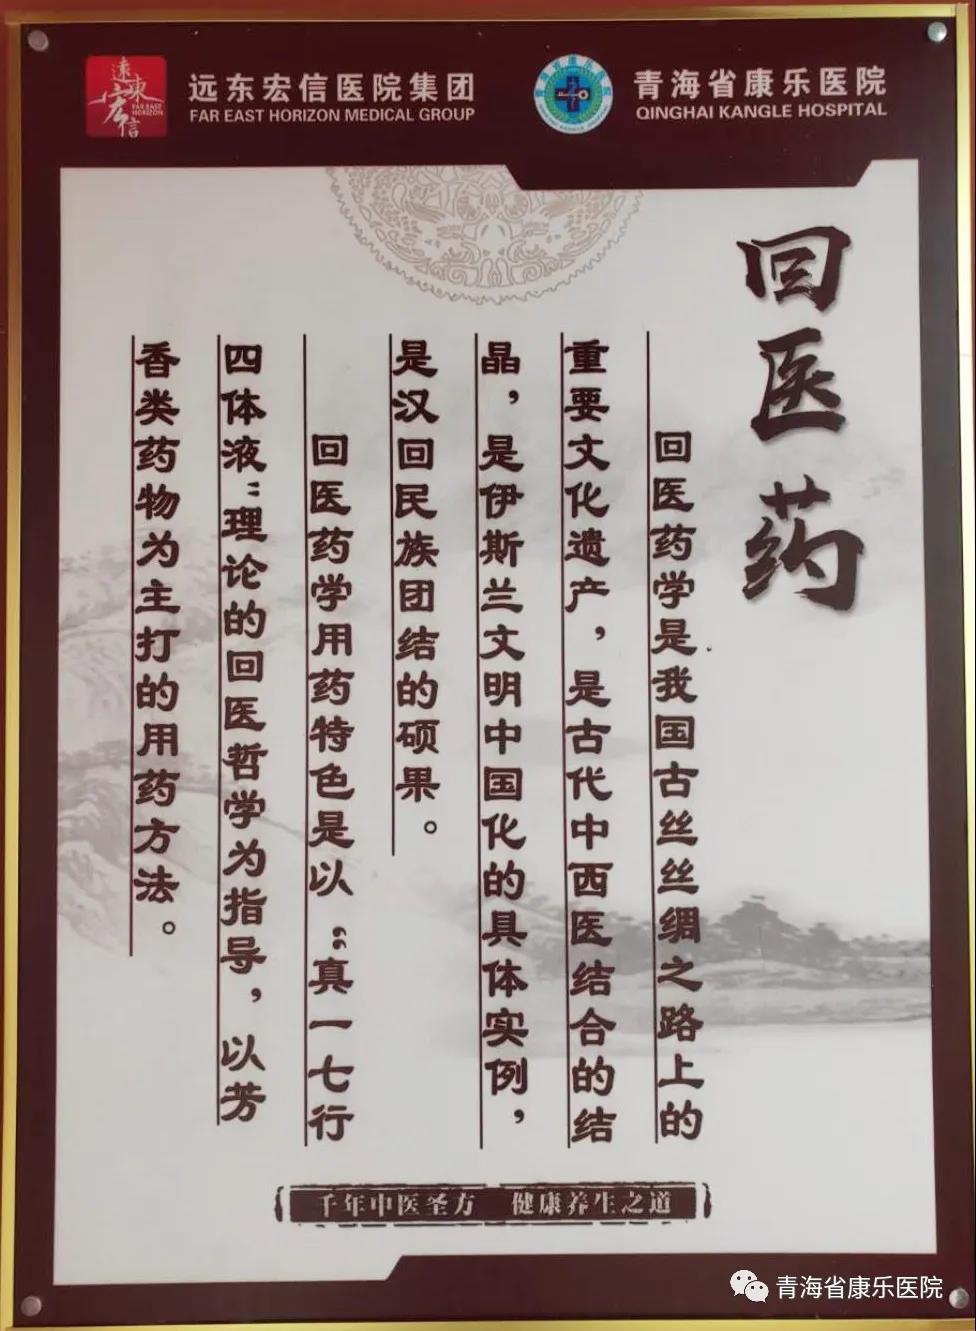 遠東宏信
FAR EAST
HORIZON
远东宏信医院集团
FAR EAST HORIZON MEDICAL GROUP
青海省康乐医院
QINGHAI KANGLE HOSPITAL
回医药
回医药学是我国古丝丝绸之路上的
重要文化遗产，是古代中西医结合的结
晶，是伊斯兰文明中国化的具体实例，
是汉回民族团结的硕果。
回医药学用药特色是以“真一七行
四体液”理论的回医哲学为指导，以芳
香类药物为主打的用药方法。
千年中医圣方 健康养生之道
青海省康乐医院